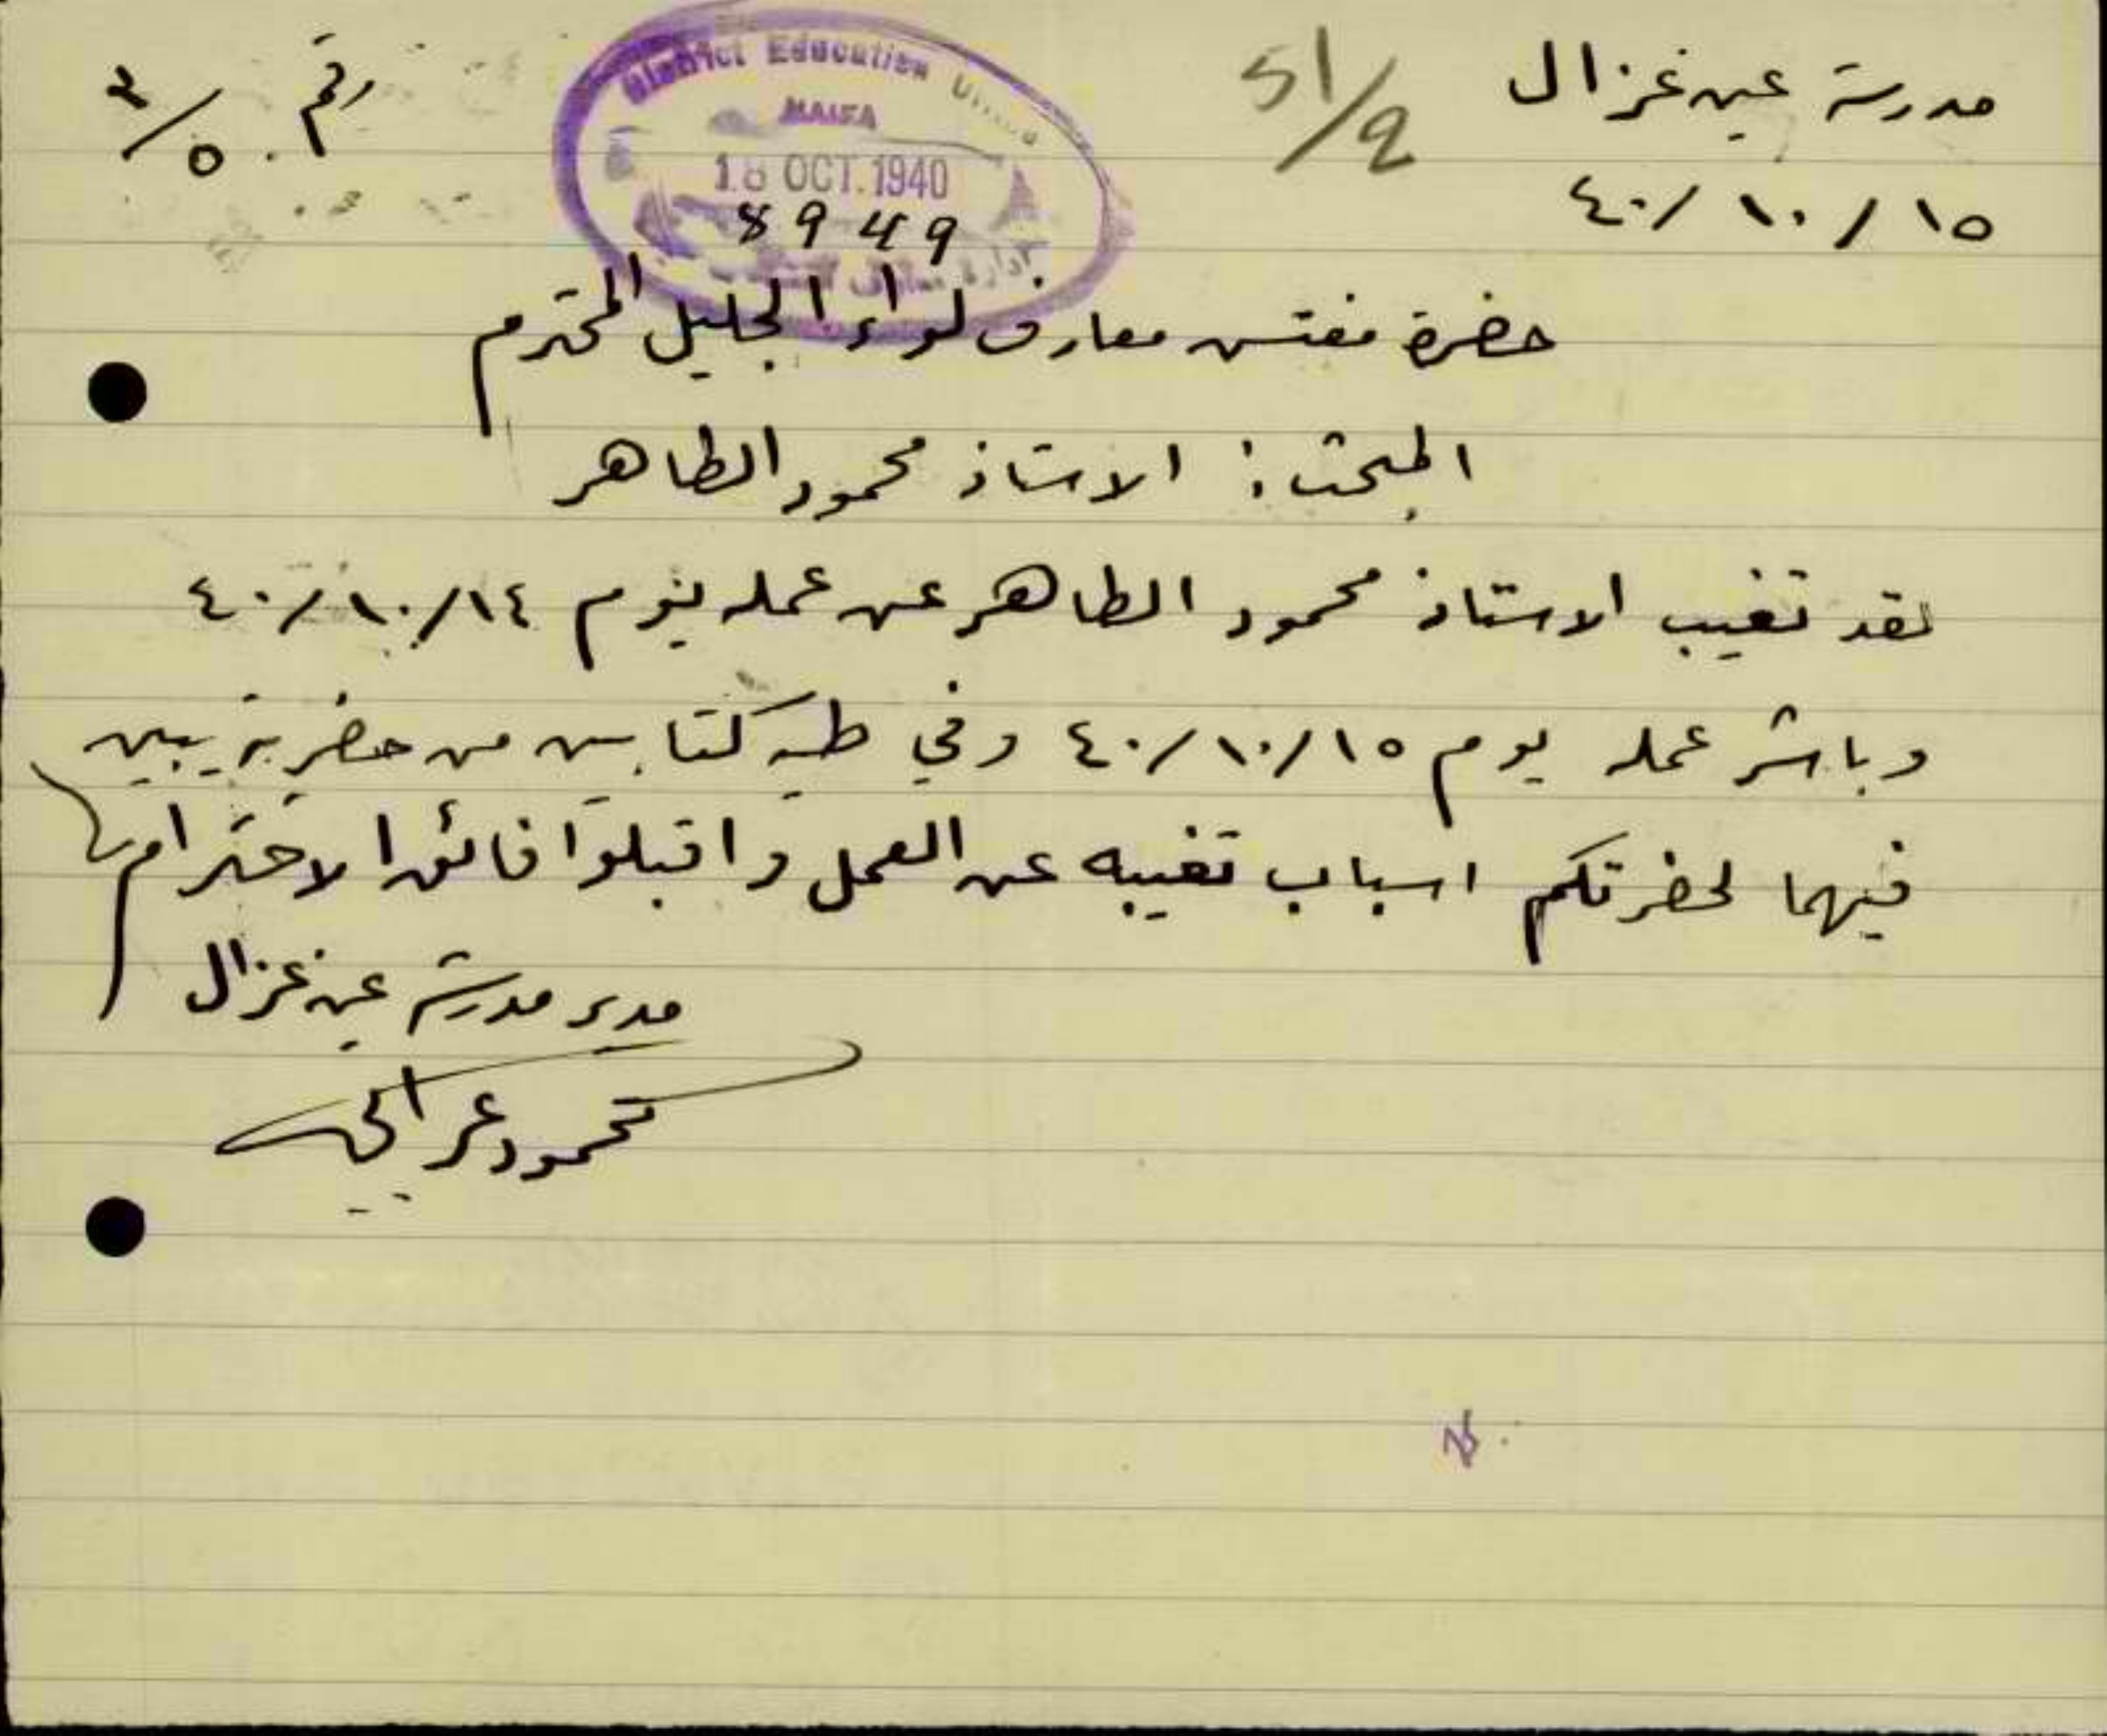 مدرسة عين غزال
51/2
رقم ٥/٢
١٥/١٠/٤٠
District Education
HAIFA
18 OCT. 1940
8949
حضرة مفتش معارف لواء الجليل المحترم
المبحث: الاستاذ محمود الطاهر
لقد تغيب الاستاذ محمود الطاهر عن عمله يوم ١٤/١٠/٤٠
وباشر عمله يوم ١٥/١٠/٤٠ وفي طيه كتابين من حضرته يبين
فيهما لحضرتكم اسباب تغيبه عن العمل واقبلوا فائق الاحترام
مدير مدرسة عين غزال
محمود عرابي